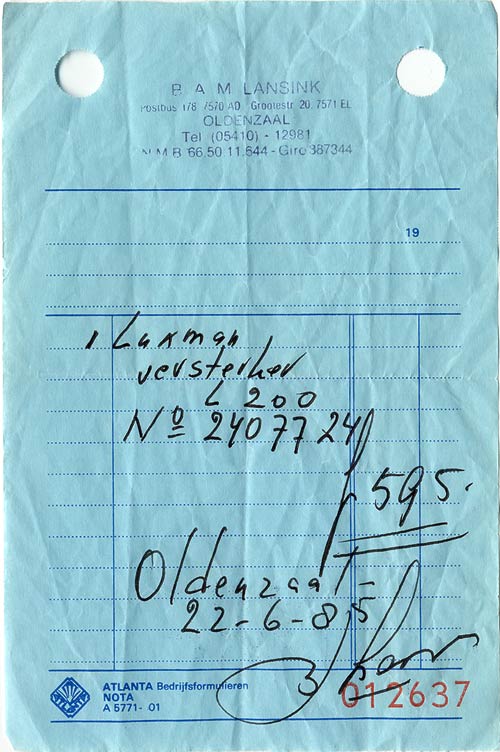 B A M LANSINK
Postbus 178 7570 AD Grootestr 20 7571 EL
OLDENZAAL
Tel (05410) - 12981
N M B 66.50 11.644 - Giro 387344
19
1 Luxman
versterker
L 200
Nº 2407724
f 595.
Oldenzaal -
22-6-85
012637
ATLANTA Bedrijfsformulieren
NOTA
A 5771-01